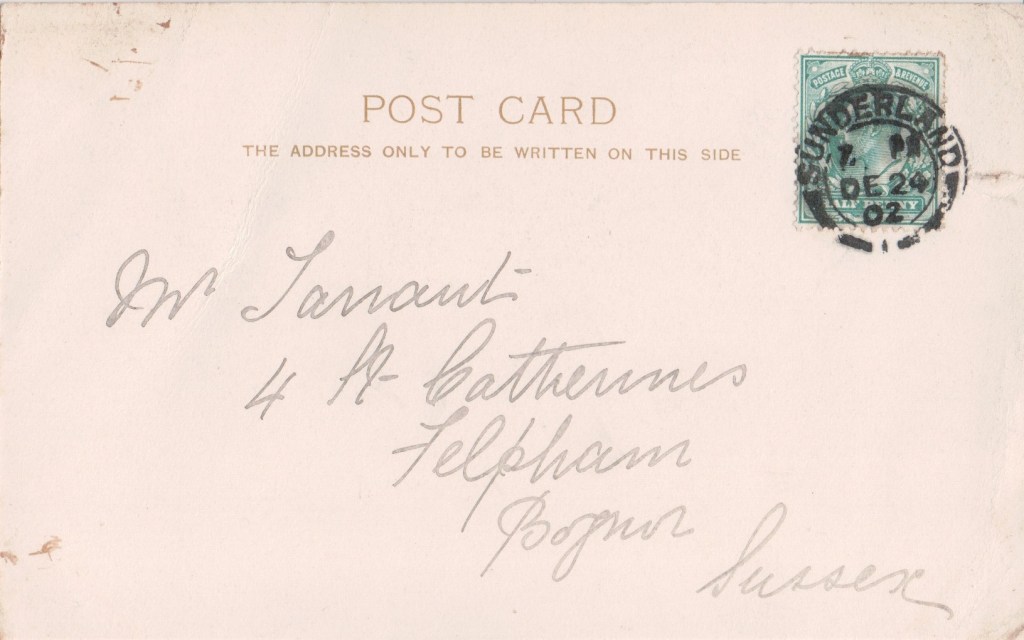 POST CARD
THE ADDRESS ONLY TO BE WRITTEN ON THIS SIDE
POSTAGE & REVENUE
SUNDERLAND
7. PM
DE 24
02
HALF PENNY
Mr Tarrant
4 St Catherines
Felpham
Bognor
Sussex